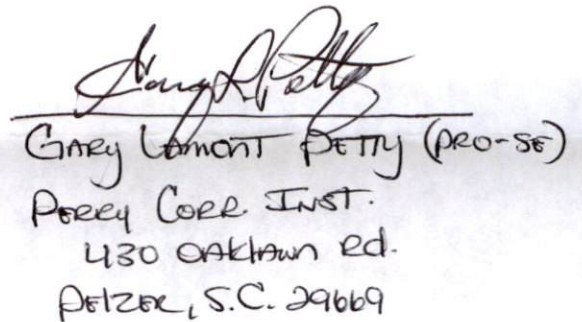 Gary L Petty
GARY LAMONT PETTY (PRO-SE)
PERRY CORR. INST.
430 OAKLAWN Rd.
PELZER, S.C. 29669